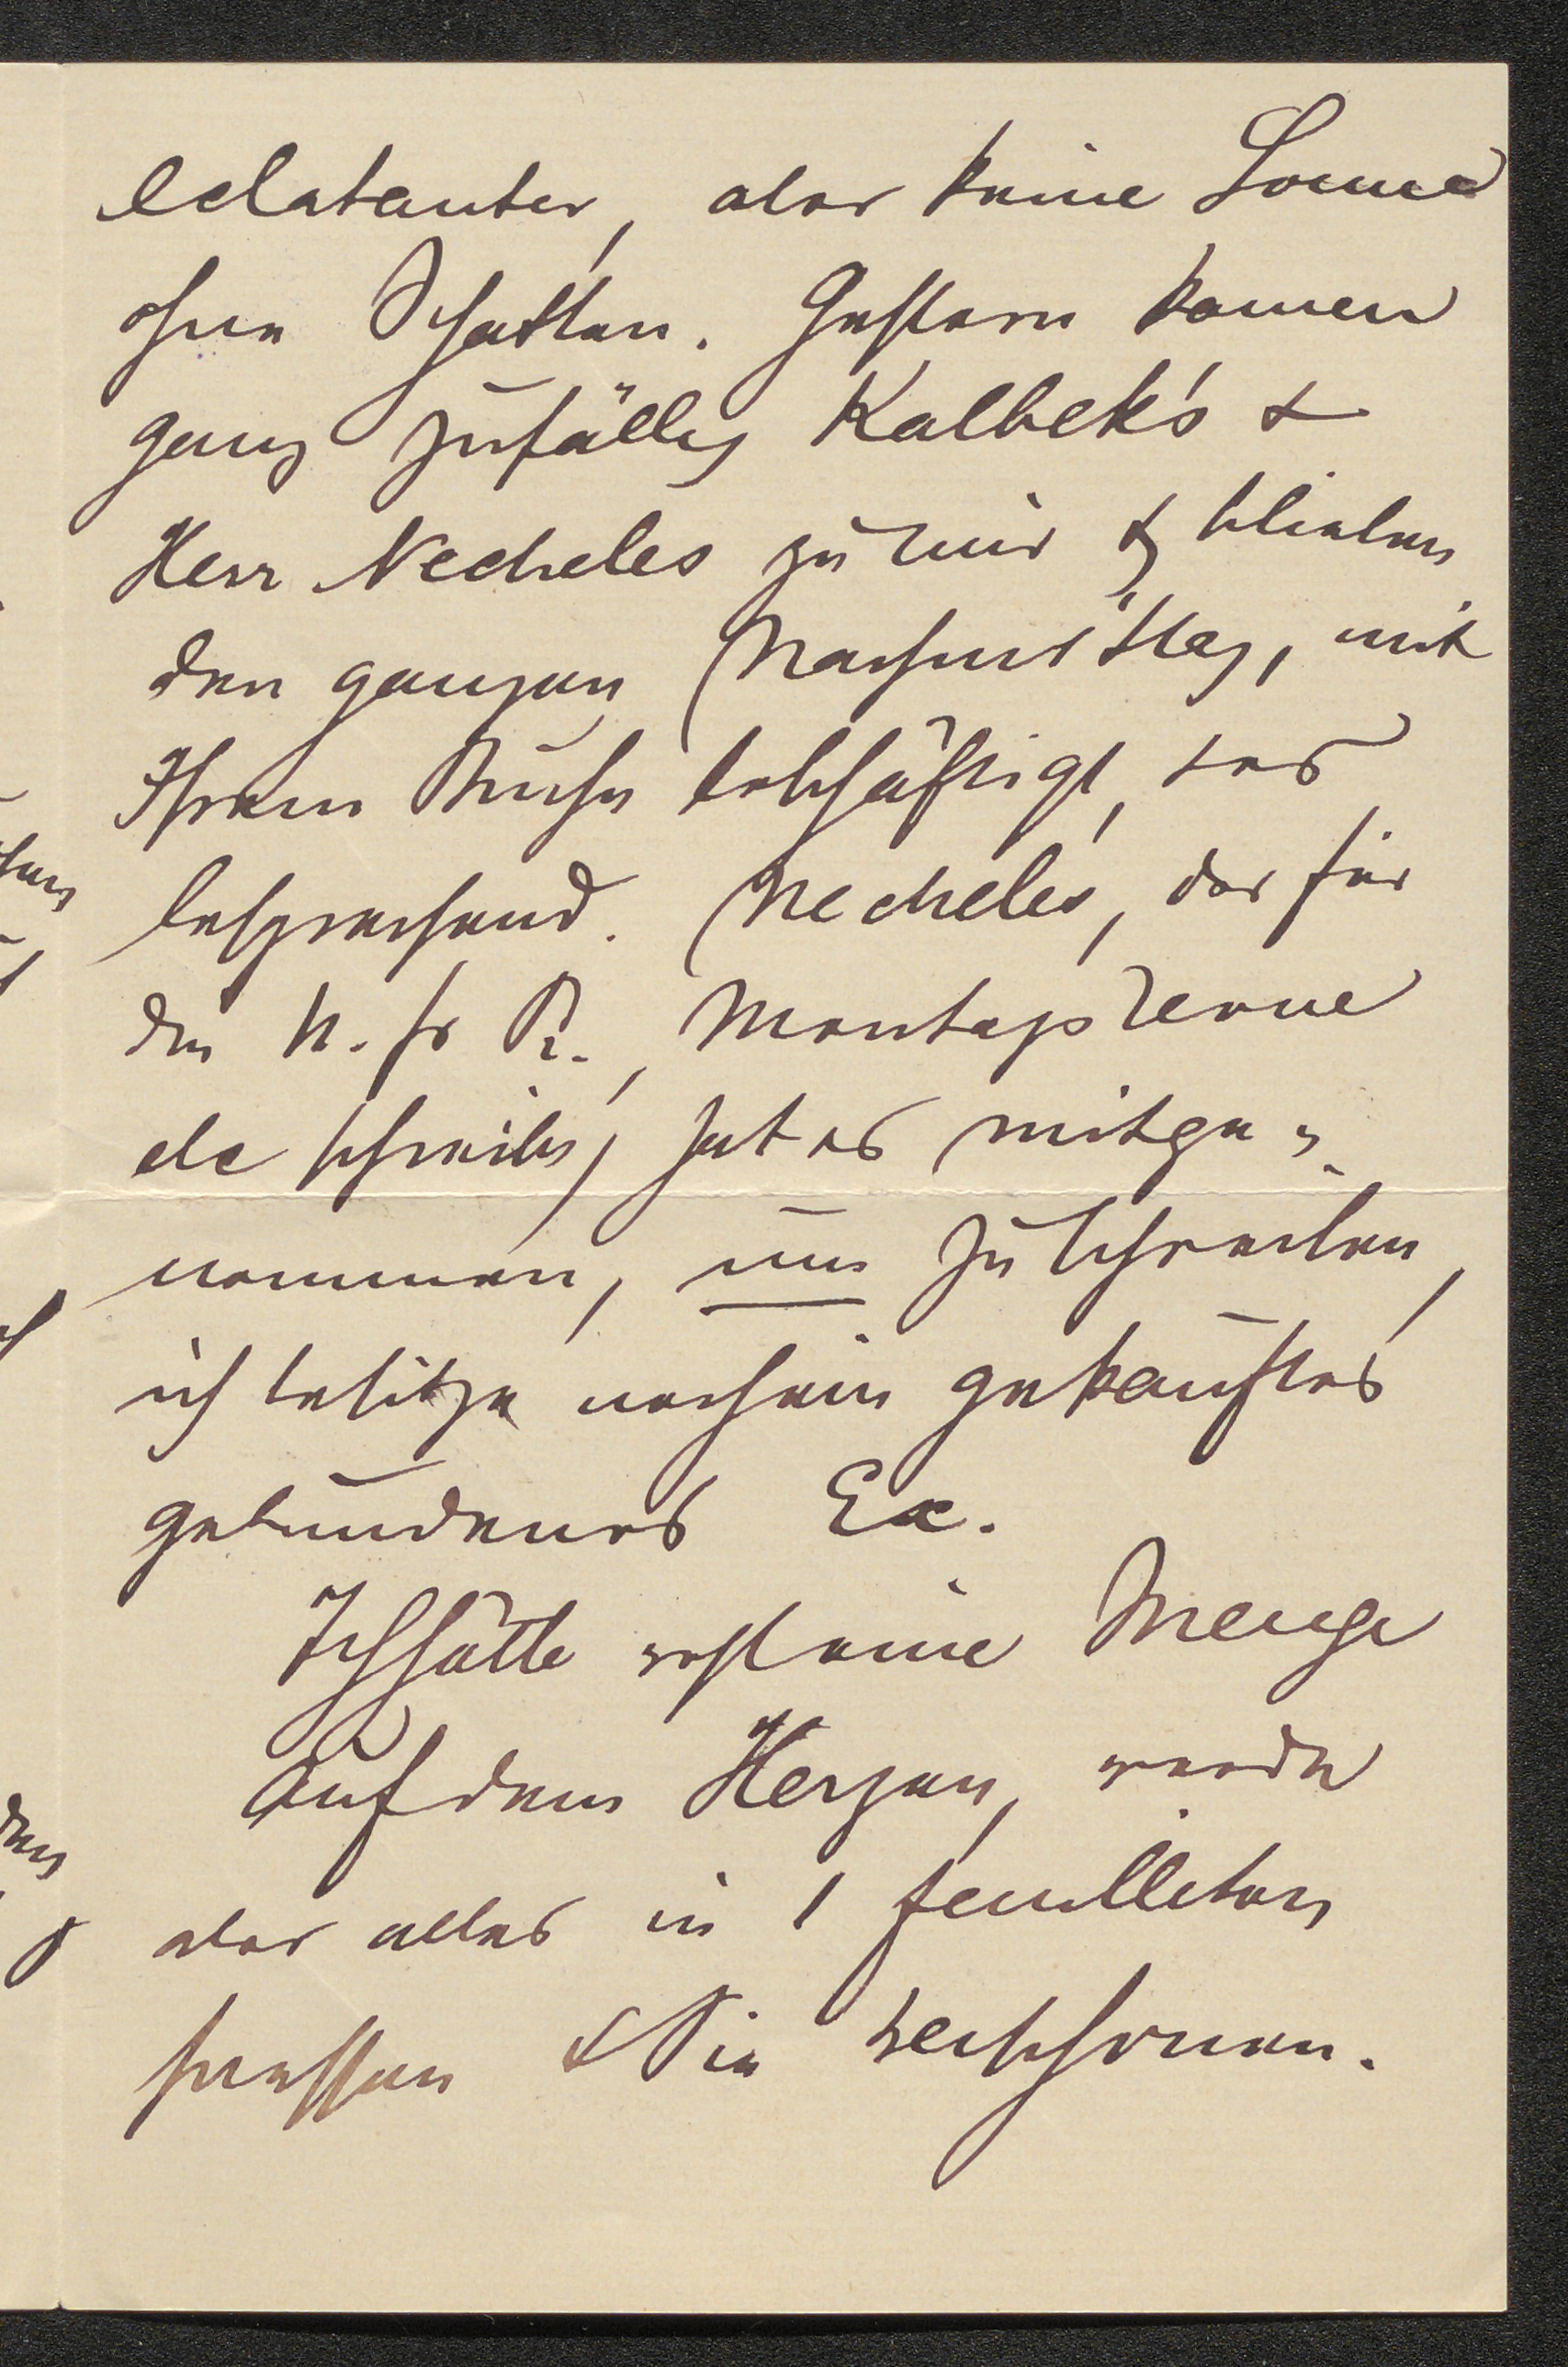 eclatanter, aber keine Sonne
ohne Schatten. Gestern kamen
ganz zufällig Kalbek's &
Herr Necheles zu mir & blieben
den ganzen Nachmittag, mit
Ihrem Buche beschäftigt, es
besprechend. Necheles, der für
die N. fr Pr., Montagsrevue
etc schreibt, hat es mitge-
nommen, um zu schreiben,
ich besitze noch ein gekauftes
gebundenes Ex.
Ich hätte wohl eine Menge
auf dem Herzen, werde
aber alles in 1 feuilleton
pressen & Sie verschonen.